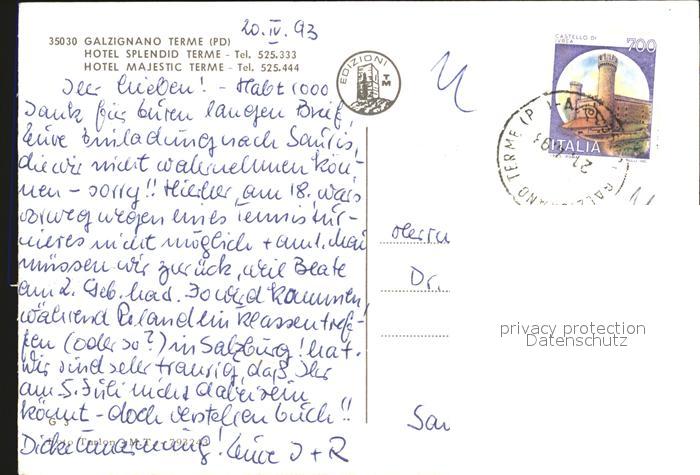 20.IV.93
35030 GALZIGNANO TERME (PD)
HOTEL SPLENDID TERME - Tel. 525.333
HOTEL MAJESTIC TERME - Tel. 525.444
EDIZIONI TM
CASTELLO DI IVREA
700
ITALIA
GALZIGNANO TERME (P
Ihr Lieben! - Habt 1000
Dank für Euren langen Brief,
Eure Einladung nach
die wir nicht wahrnehmen kön-
nen - sorry!! Hierher, am 18, wars
vorweg wegen eines Tennistur-
nieres nicht möglich + am 1. Mai
müssen wir zurück, weil Beate
am 2. Geb. hat. So wird kommen,
während Roland ein Klassentref-
fen (oder so?) in Salzburg! hat.
Wir sind sehr traurig, daß Ihr
am 5. Juli nicht dabei sein
könnt - doch verstehen Euch!!
Dicke Umarmung! Eure I + R
Herrn
Dr.
privacy protection
Datenschutz